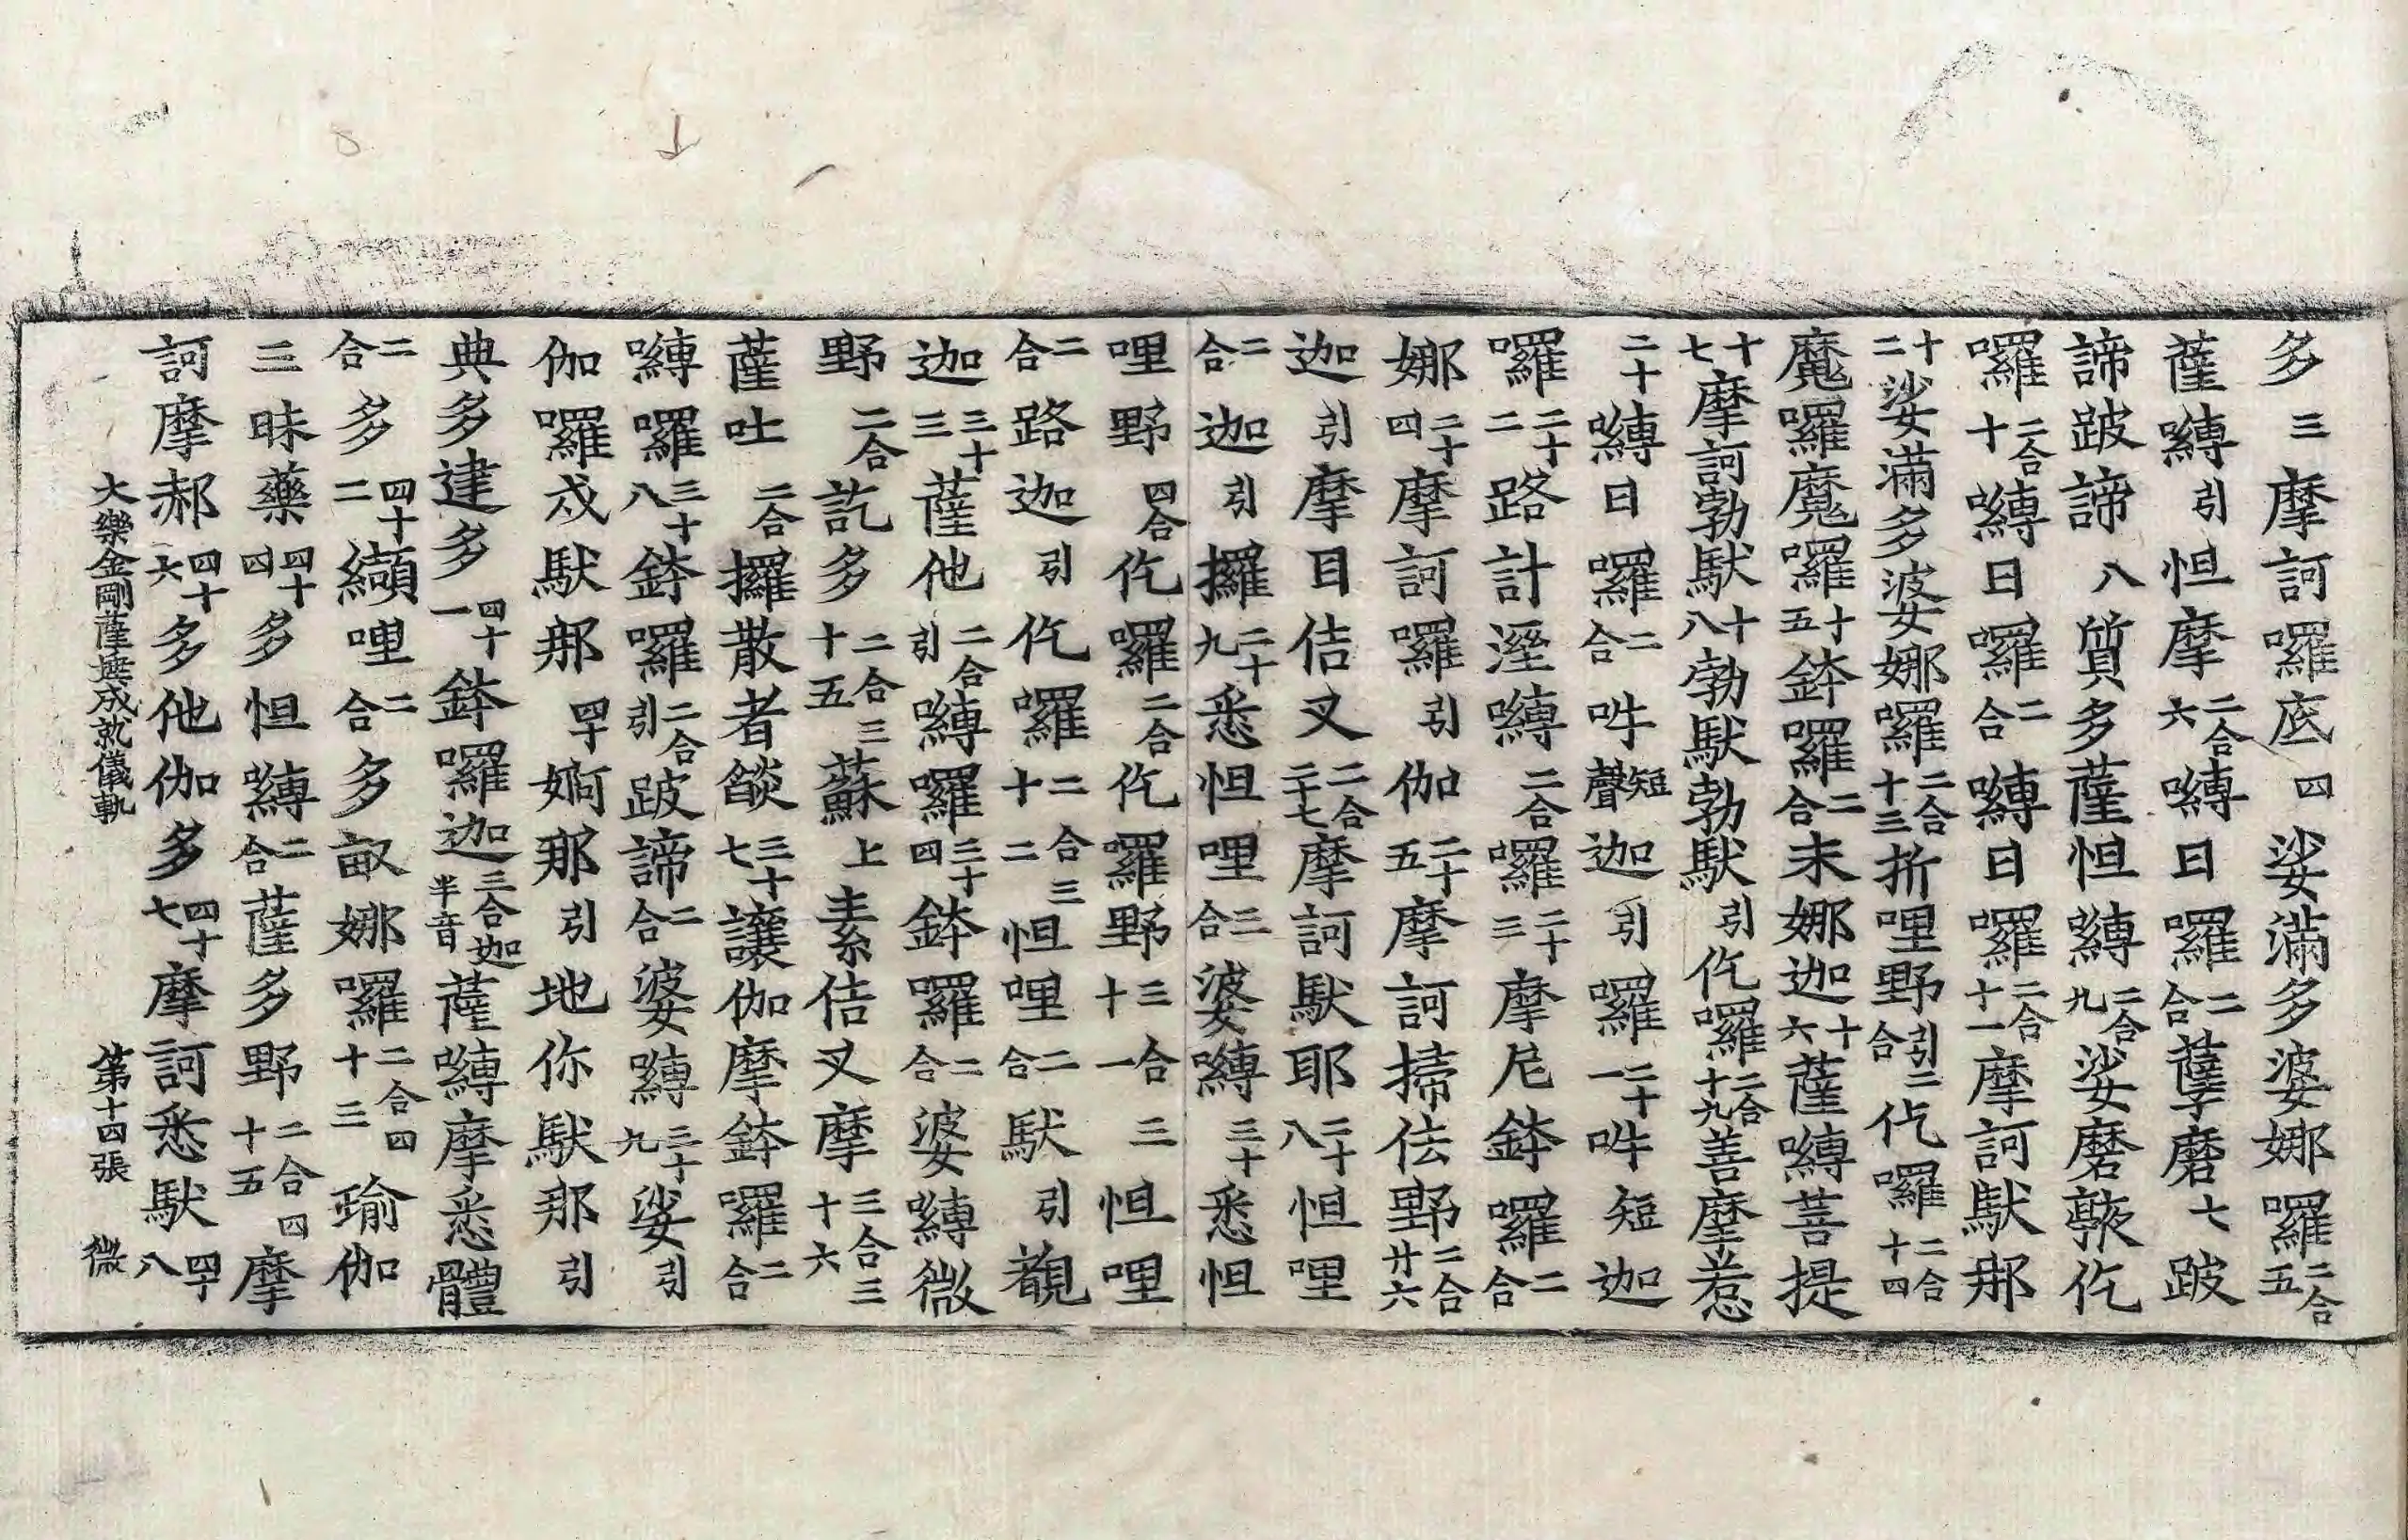 多三摩訶囉底四娑滿多婆娜囉二合五
薩嚩引怛摩二合六嚩日囉二合孽磨七跛
諦跛諦八質多薩怛嚩二合九娑磨𩑔仡
囉二合十嚩日囉二合嚩日囉二合十一摩訶馱那
十二娑滿多婆娜囉二合十三折哩野引二合仡囉二合十四
魔囉魔囉十五鉢囉二合末娜迦十六薩嚩菩提
十七摩訶勃馱十八勃馱勃馱引仡囉二合十九善摩惹
二十嚩日囉二合吽短聲迦引囉二十一吽短迦
囉二十二路計溼嚩二合囉二十三摩尼鉢囉二合
娜二十四摩訶囉引伽二十五摩訶掃佉野二合廿六
迦引摩目佶叉二合二十七摩訶馱耶二十八怛哩
二合迦引攞二十九悉怛哩二合婆嚩三十悉怛
哩野四合仡囉二合仡囉野三合十一三怛哩
二合路迦引仡囉二合三十二怛哩二合馱引覩
迦三十三薩他二合引嚩囉三十四鉢囉二合婆嚩微
野二合訖多二合三十五蘇上素佶叉摩三合三十六
薩吐二合攞散者燄三十七讓伽摩鉢囉二合
嚩囉三十八鉢囉二合引跛諦二合婆嚩三十九娑引
伽囉戍馱那四十婀那引地你馱那引
典多建多四十一鉢囉迦三合迦半音薩嚩摩悉體
二合多四十二纈哩二合多畝娜囉二合四十三瑜伽
三昧藥四十四多怛嚩二合薩多野二合四十五摩
訶摩郝四十六多他伽多四十七摩訶悉馱四十八
大樂金剛薩埵成就儀軌 第十四張 微